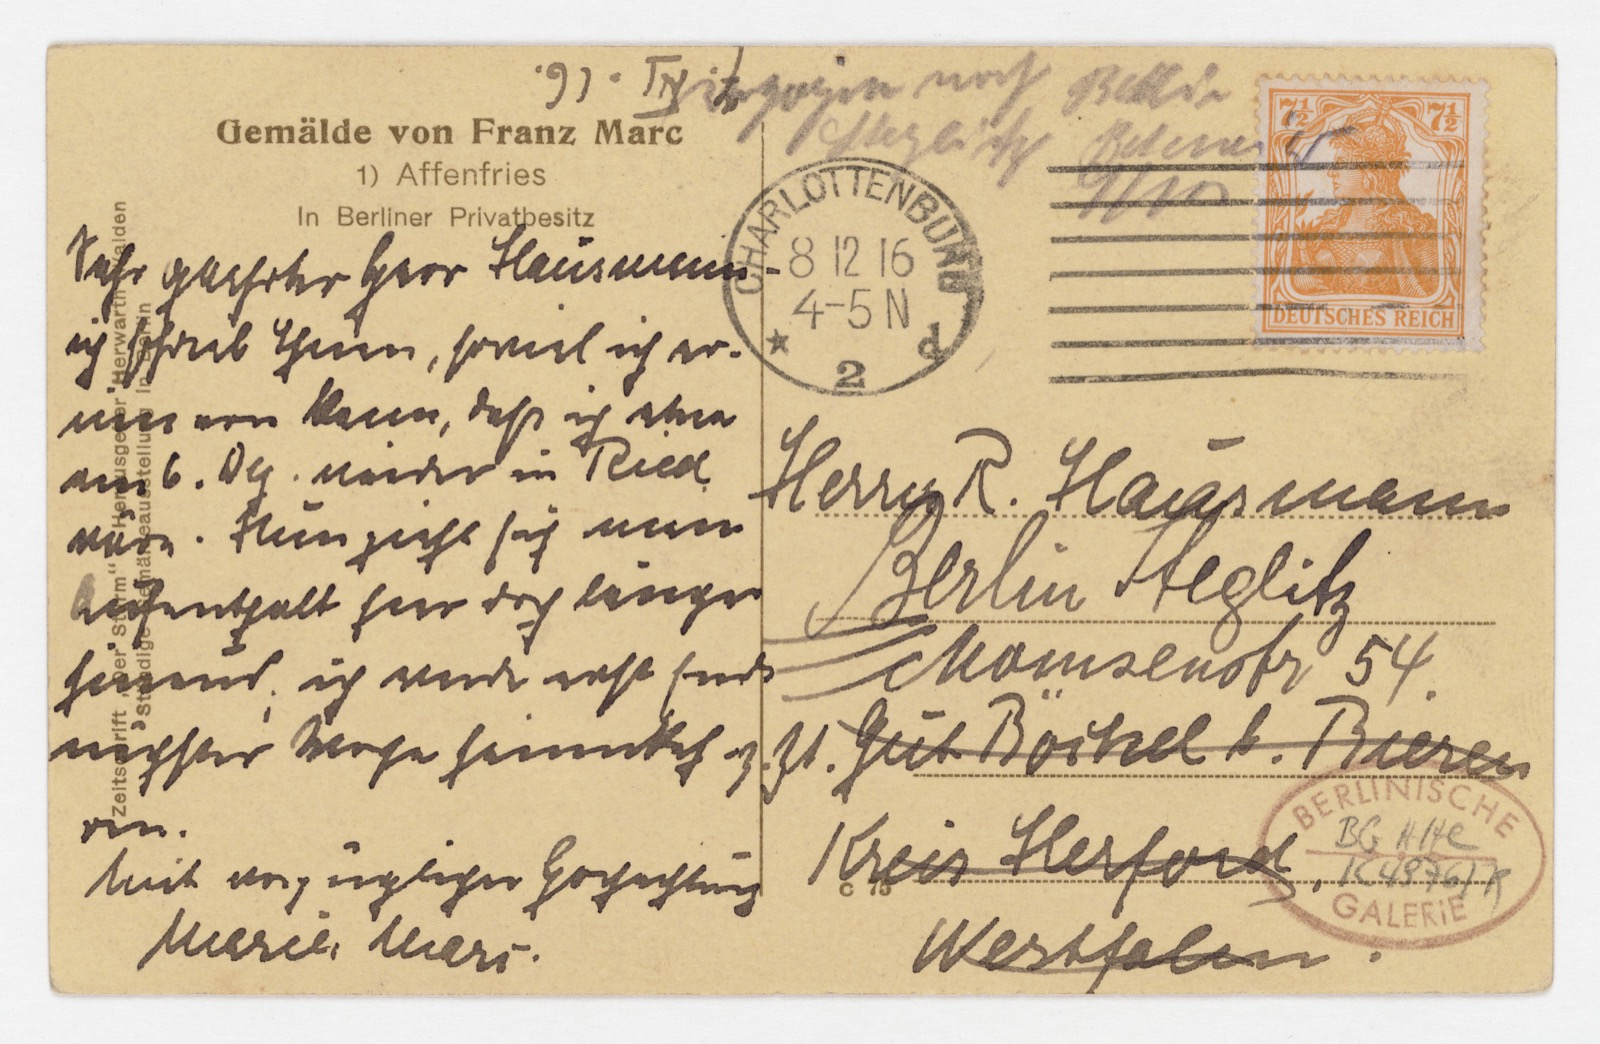 Gemälde von Franz Marc
1) Affenfries
In Berliner Privatbesitz
Zeitschrift „Der Sturm“ Herausgeber: Herwarth Walden
Ständige Gemäldeausstellung in Berlin
Sehr geehrter Herr Hausmann –
ich schrieb Ihnen, soviel ich er-
innern kann, daß ich etwa
am 6. Dez. wieder in Ried
wäre. Nun zieht sich mein
Aufenthalt hier doch länger
hinaus, ich werde erst Ende
nächster Woche heimkehren
Mit vorzüglicher Hochachtung
Maria Marc.
nach
Steglitz
CHARLOTTENBURG
8 12 16
4–5 N
★ 2 d
7½ 7½
DEUTSCHES REICH
Herrn R. Hausmann
Berlin Steglitz
Momsenstr 54.
z. Zt. Gut Böckel b. Bieren
Kreis Herford.
Westfalen.
C 75
BERLINISCHE
BG HHC
K 4976/K
GALERIE